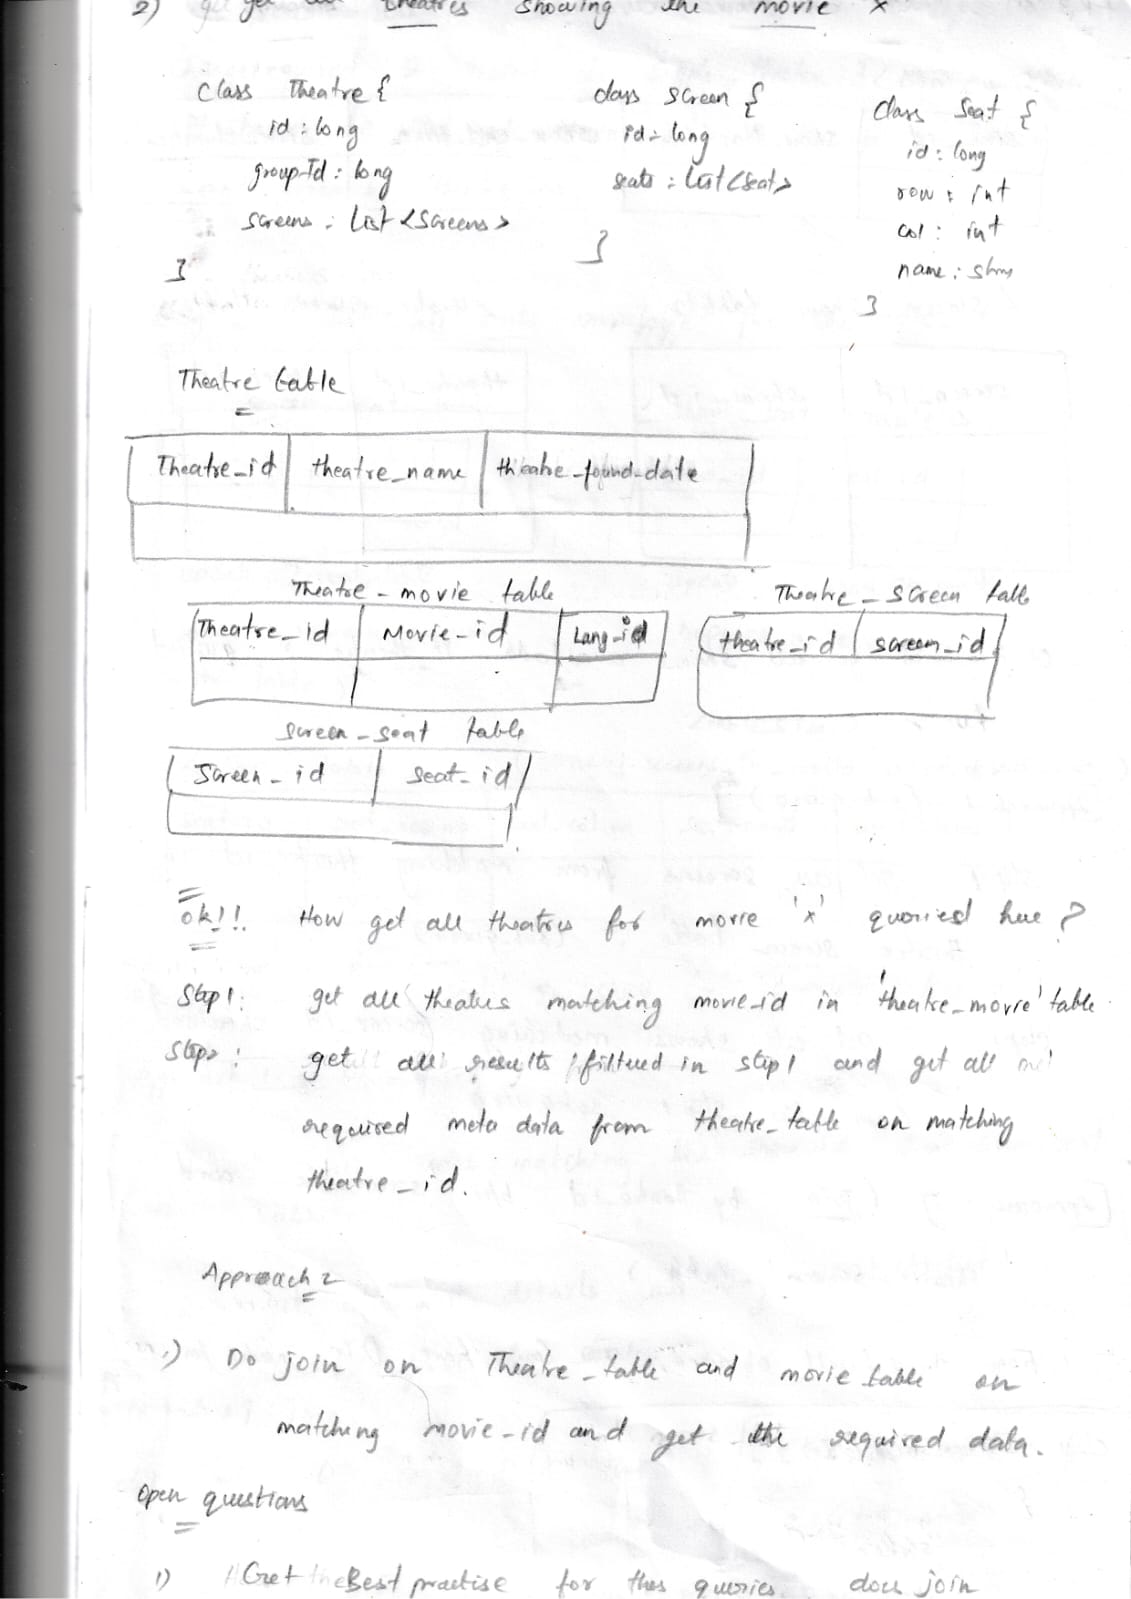 2) get all theatres showing the movie x
class Theatre {
id : long
group-Id : long
screens : List <Screens>
}
class screen {
id : long
seats : List <Seat>
}
Class Seat {
id : long
row : int
col : int
name :
}
Theatre table
Theatre_id theatre_name theatre_found_date
Theatre - movie table
Theatre_id Movie-id Lang-id
Theatre - screen table
theatre_id screen_id
screen - seat table
Screen_id Seat_id
ok!! How get all theatres for movie 'x' queried here ?
Step 1: get all theatres matching movie_id in 'theatre_movie' table.
Step 2: get all results filtered in step 1 and get all
required meta data from theatre_table on matching
theatre_id.
Approach 2
1) Do join on Theatre_table and movie table on
matching movie-id and get the required data.
Open questions
1) Get the Best practise for this queries. does join